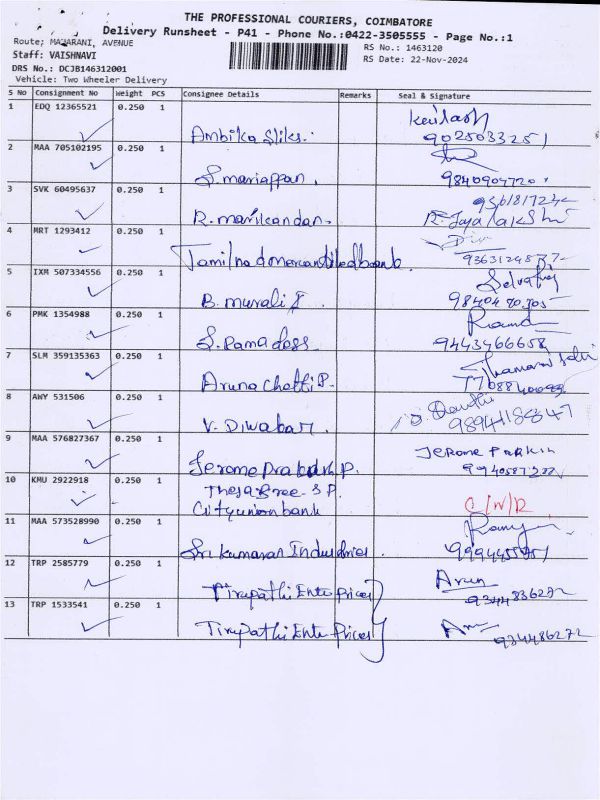 THE PROFESSIONAL COURIERS, COIMBATORE
Delivery Runsheet - P41 - Phone No.:0422-3505555 - Page No.:1
Route; MAHARANI, AVENUE
RS No.: 1463120
Staff: VAISHNAVI
RS Date: 22-Nov-2024
DRS No.: DCJB146312001
Vehicle: Two Wheeler Delivery
S No Consignment No Weight PCS Consignee Details Remarks Seal & Signature
1 EDQ 12365521 0.250 1 Ambika Sliks. Kailash
9025033251
2 MAA 705102195 0.250 1 S. mariappan.
9840904720
3 SVK 60495637 0.250 1 R. manikandan.
R. Jayalakshmi
4 MRT 1293412 0.250 1
5 IXM 507334556 0.250 1 B. murali
6 PMK 1354988 0.250 1 S. Ramadoss
9443466658
7 SLM 359135363 0.250 1 Aruna Chetti P.
8 AWY 531506 0.250 1 V. Diwakar.
9 MAA 576827367 0.250 1 Jerome Prabakar P. Jerome
10 KMU 2922918 0.250 1
City union bank
11 MAA 573528990 0.250 1 Sri kumaran Industries.
12 TRP 2585779 0.250 1 Tirupathi Ente Prices Arun
9344836272
13 TRP 1533541 0.250 1 Tirupathi Ente Prices